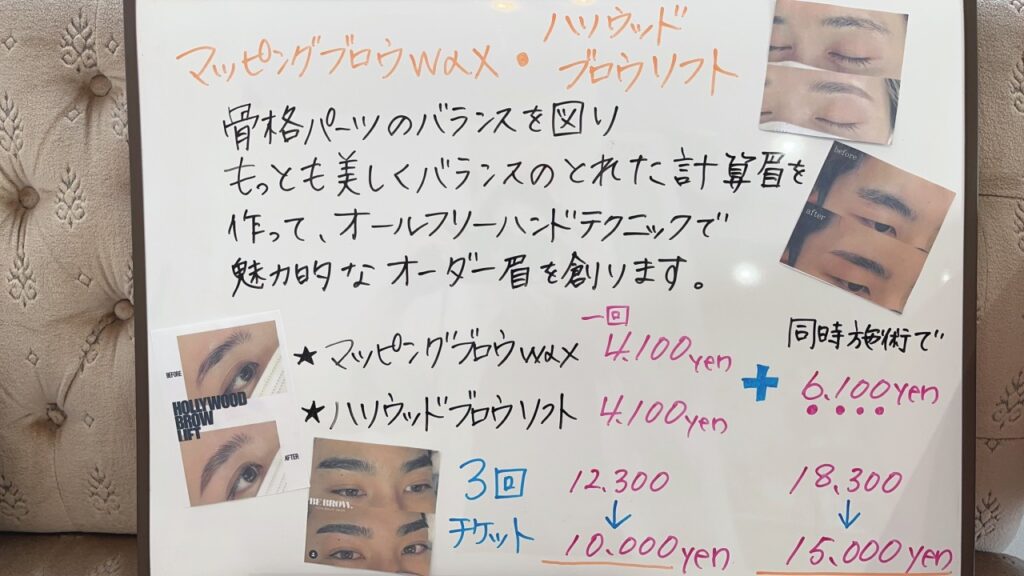 マッピングブロウwax・ハリウッドブロウリフト
骨格パーツのバランスを図り
もっとも美しくバランスのとれた計算眉を
作って、オールフリーハンドテクニックで
魅力的なオーダー眉を創ります。
一回
★マッピングブロウwax 4.100yen
★ハリウッドブロウリフト 4.100yen
+
同時施術で
6.100yen
3回
チケット
12.300
↓
10.000yen
18.300
↓
15.000yen
before
after
BEFORE
HOLLYWOOD
BROW
LIFT
AFTER
BE BROW.